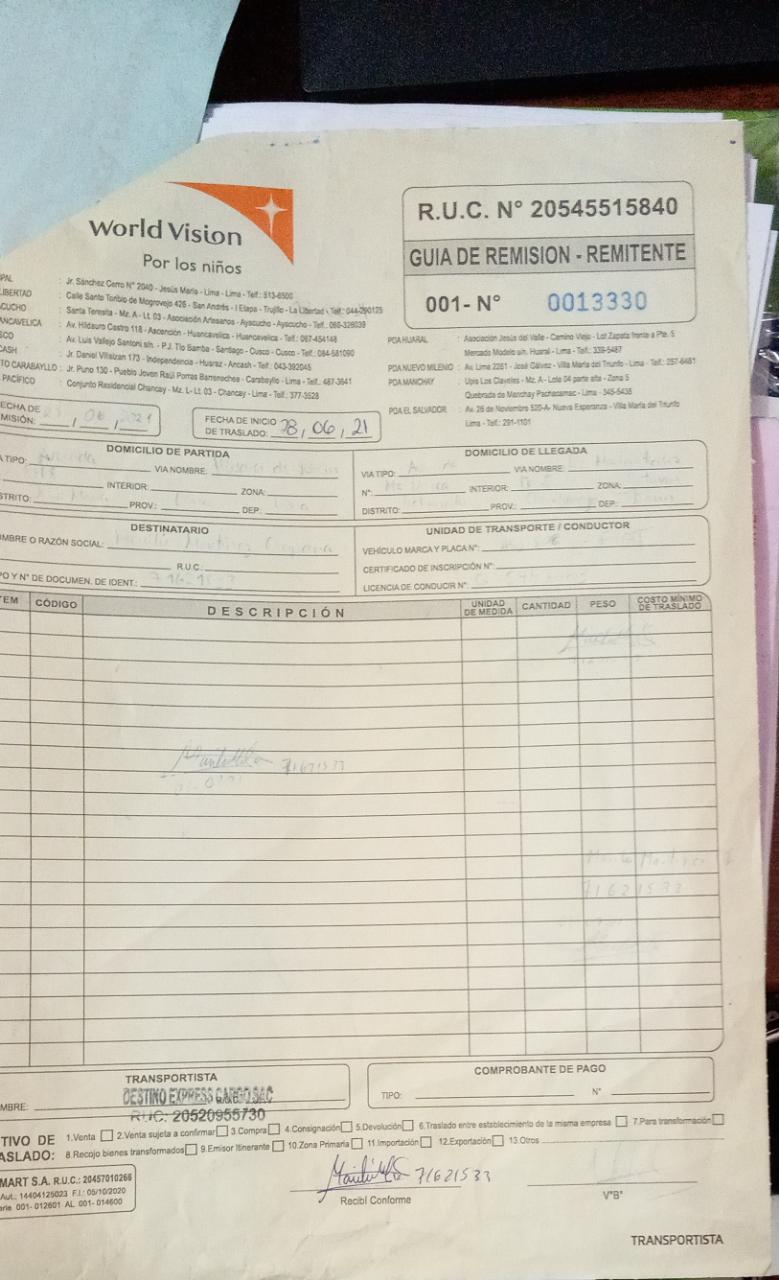 World Vision
Por los niños
R.U.C. N° 20545515840
GUIA DE REMISION - REMITENTE
001- N° 0013330
PAL : Jr. Sánchez Cerro N° 2040 - Jesús María - Lima - Telf.: 513-6500
LIBERTAD : Calle Santo Toribio de Mogrovejo 426 - San Andrés - I Etapa - Trujillo - La Libertad - Telf.: 044-290125
CUCHO : Santa Teresita - Mz. A - Lt. 03 - Asociación Artesanos - Ayacucho - Ayacucho - Telf.: 066-326039
ANCAVELICA : Av. Hildauro Castro 118 - Ascención - Huancavelica - Huancavelica - Telf.: 067-454148
SCO : Av. Luis Vallejo Santoni s/n. - P.J. Tío Bamba - Santiago - Cusco - Cusco - Telf.: 084-581090
CASH : Jr. Daniel Villaizan 173 - Independencia - Huaraz - Ancash - Telf.: 043-392045
TO CARABAYLLO : Jr. Puno 130 - Pueblo Joven Raúl Porras Barrenechea - Carabayllo - Lima - Telf.: 487-3641
PACÍFICO : Conjunto Residencial Chancay - Mz. L- Lt. 03 - Chancay - Lima - Telf.: 377-3528
PDA HUARAL : Asociación Jesús del Valle - Camino Viejo - Lot Zapata frente a Pte. 5
Mercado Modelo s/n. Huaral - Lima - Telf.: 339-5487
PDA NUEVO MILENIO : Av. Lima 2261 - José Gálvez - Villa María del Triunfo - Lima - Telf.: 257-6481
PDA MANCHAY : Upis Los Claveles - Mz. A - Lote 04 parte alta - Zona 5
Quebrada de Manchay Pachacamac - Lima - 345-5436
PDA EL SALVADOR : Av. 26 de Noviembre 520-A- Nueva Esperanza - Villa María del Triunfo
Lima - Telf.: 291-1101
ECHA DE
MISIÓN: / 06 / 2021
FECHA DE INICIO
DE TRASLADO: 28, 06, 21
DOMICILIO DE PARTIDA
A TIPO: VIA NOMBRE:
INTERIOR: ZONA:
STRITO: PROV.: DEP.:
DOMICILIO DE LLEGADA
VIA TIPO: VIA NOMBRE:
N°: INTERIOR: ZONA:
DISTRITO: PROV.: DEP.:
DESTINATARIO
OMBRE O RAZÓN SOCIAL:
R.U.C.:
PO Y N° DE DOCUMEN. DE IDENT.:
UNIDAD DE TRANSPORTE / CONDUCTOR
VEHÍCULO MARCA Y PLACA N°:
CERTIFICADO DE INSCRIPCIÓN N°:
LICENCIA DE CONDUCIR N°:
TEM CÓDIGO DESCRIPCIÓN UNIDAD DE MEDIDA CANTIDAD PESO COSTO MÍNIMO DE TRASLADO
71621533
71621533
TRANSPORTISTA
DESTINO EXPRESS CARGO SAC
MBRE:
RUC: 20520955730
COMPROBANTE DE PAGO
TIPO: N°
TIVO DE
ASLADO:
1.Venta 2.Venta sujeta a confirmar 3.Compra 4.Consignación 5.Devolución 6.Traslado entre establecimiento de la misma empresa 7.Para transformación
8.Recojo bienes transformados 9.Emisor Itinerante 10.Zona Primaria 11.Importación 12.Exportación 13.Otros
MART S.A. R.U.C.: 20457010266
Aut.: 14404125023 F.I.: 05/10/2020
rie 001- 012601 AL 001- 014600
71621533
Recibí Conforme
V°B°
TRANSPORTISTA